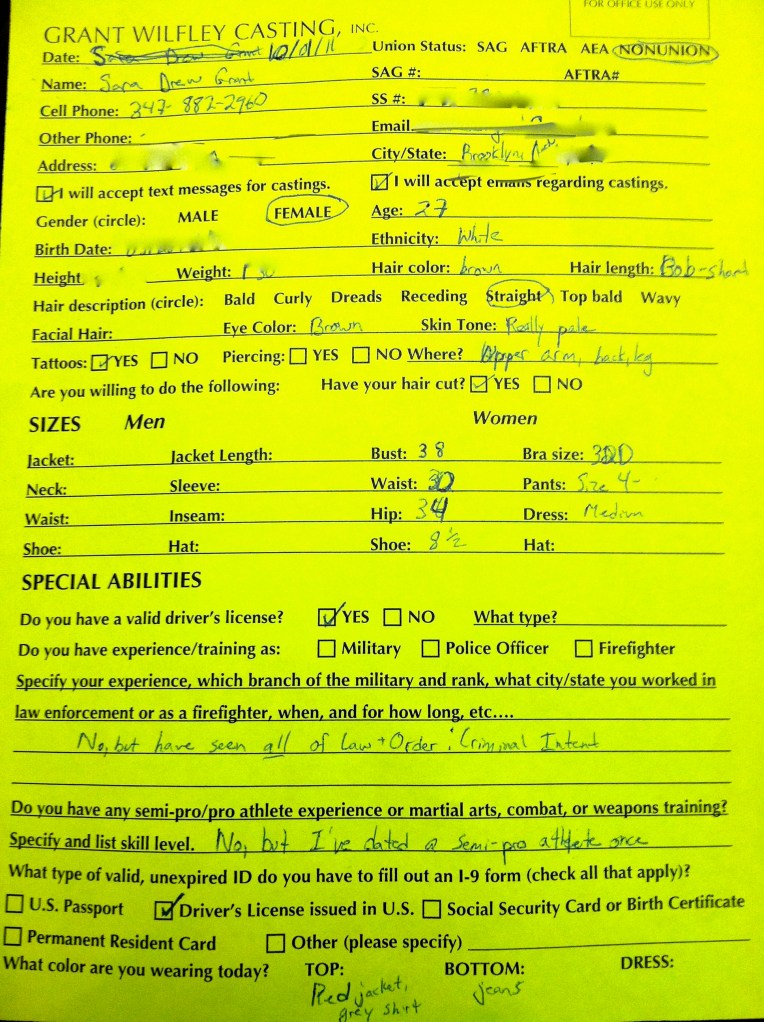 FOR OFFICE USE ONLY
GRANT WILFLEY CASTING, INC.
Date: 10/01/11 Union Status: SAG AFTRA AEA NONUNION
Name: Sara Drew Grant SAG #: AFTRA#
Cell Phone: 347-882-2960 SS #:
Other Phone: - Email
Address: City/State: Brooklyn
I will accept text messages for castings. I will accept emails regarding castings.
Gender (circle): MALE FEMALE Age: 27
Birth Date: Ethnicity: White
Height Weight: Hair color: brown Hair length: Bob-short
Hair description (circle): Bald Curly Dreads Receding Straight Top bald Wavy
Facial Hair: Eye Color: Brown Skin Tone: Really pale
Tattoos: YES NO Piercing: YES NO Where? Upper arm, back, leg
Are you willing to do the following: Have your hair cut? YES NO
SIZES Men Women
Jacket: Jacket Length: Bust: 38 Bra size: 32DD
Neck: Sleeve: Waist: 30 Pants: Size 4-
Waist: Inseam: Hip: 34 Dress: Medium
Shoe: Hat: Shoe: 8 1/2 Hat:
SPECIAL ABILITIES
Do you have a valid driver's license? YES NO What type?
Do you have experience/training as: Military Police Officer Firefighter
Specify your experience, which branch of the military and rank, what city/state you worked in
law enforcement or as a firefighter, when, and for how long, etc....
No, but have seen all of Law + Order: Criminal Intent
Do you have any semi-pro/pro athlete experience or martial arts, combat, or weapons training?
Specify and list skill level. No, but I've dated a semi-pro athlete once
What type of valid, unexpired ID do you have to fill out an I-9 form (check all that apply)?
U.S. Passport Driver's License issued in U.S. Social Security Card or Birth Certificate
Permanent Resident Card Other (please specify)
What color are you wearing today? TOP: BOTTOM: DRESS:
Red jacket, jeans
grey shirt